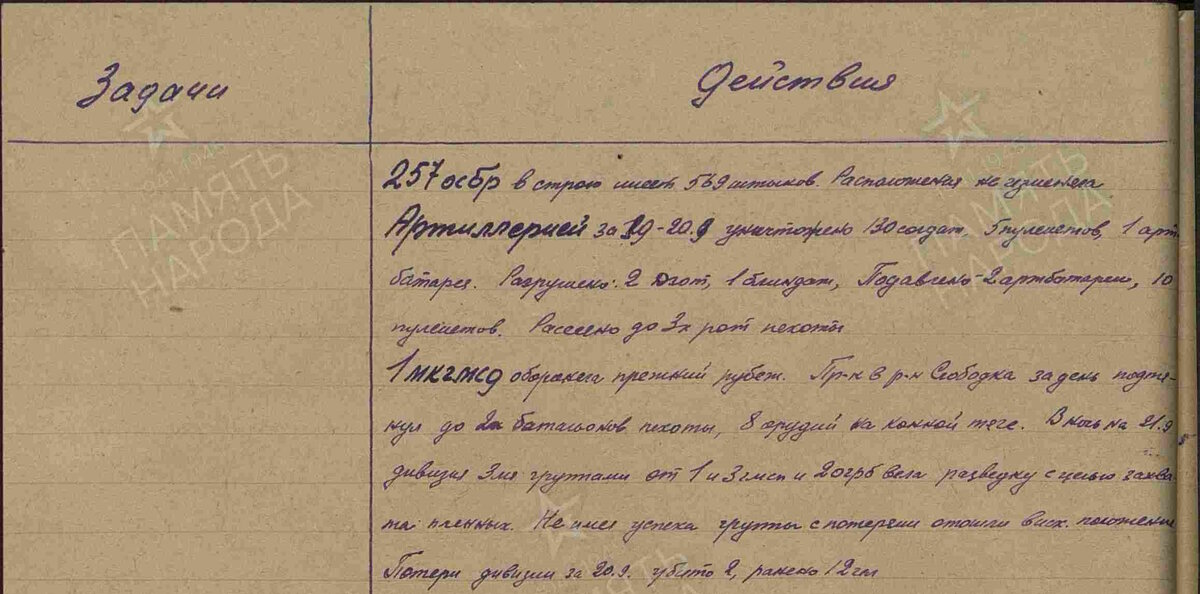 Задачи
Действия
257 осбр в строю имеет 569 штыков. Расположения не изменила
Артиллерией за 19-20.9 уничтожено 130 солдат, 5 пулеметов, 1 арт
батарея. Разрушено: 2 дзот, 1 блиндаж, Подавлено 2 артбатареи, 10
пулеметов. Рассеяно до 3х рот пехоты
1 мкгмсд обороняет прежний рубеж. Пр-к в р-н Слободка за день подтя-
нул до 2х батальонов пехоты, 8 орудий на конной тяге. В ночь на 21.9
дивизия 3мя группами от 1 и 3 гмсп и вела разведку с целью захва
та пленных. Не имея успеха группы с потерями отошли в исх. положение
Потери дивизии за 20.9. убито 2, ранено 12
ПАМЯТЬ
НАРОДА
ПАМЯТЬ
НАРОДА
ПАМЯТЬ